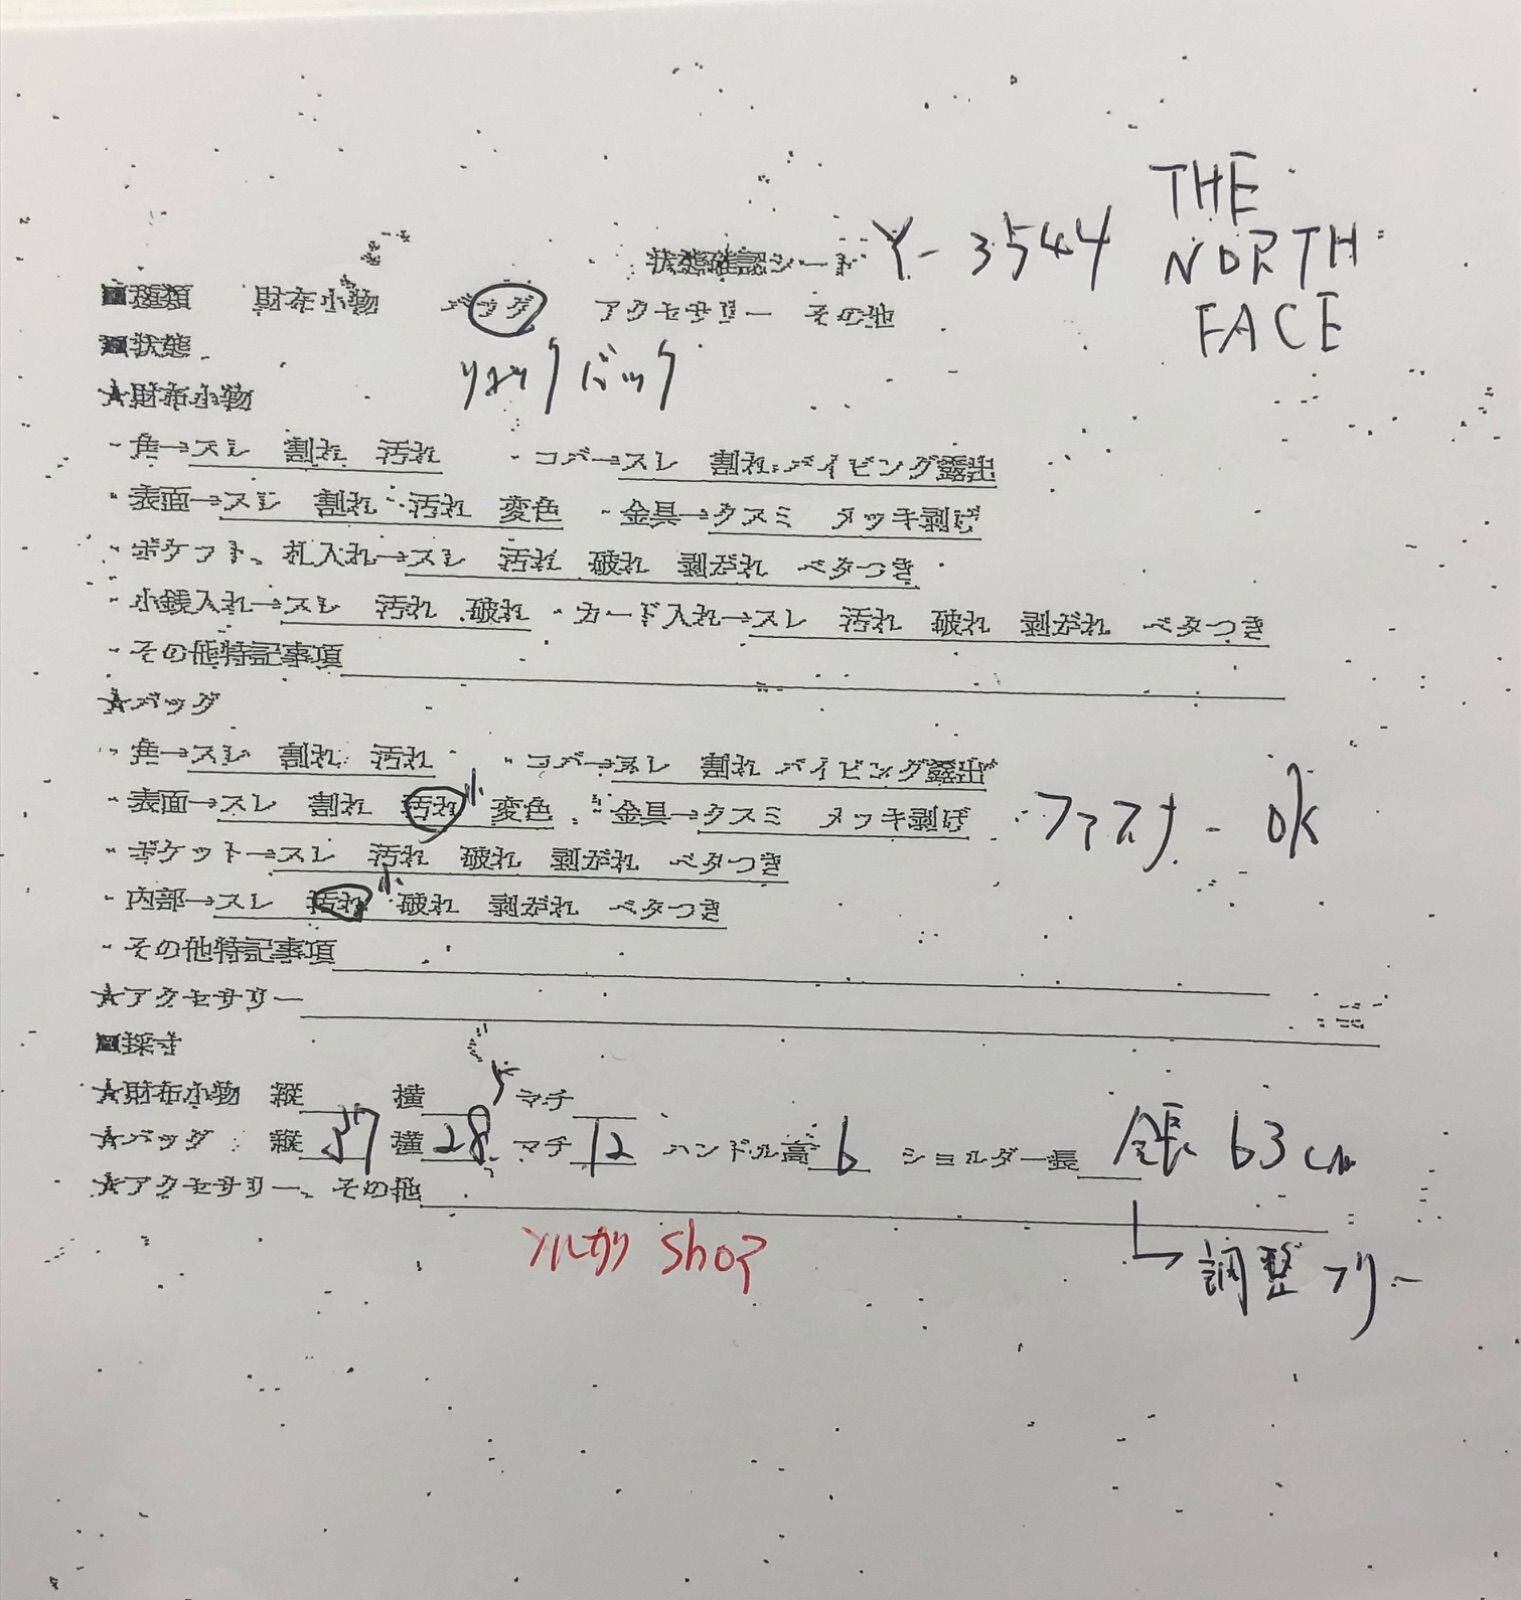 THE
NORTH
FACE
状態確認シート Y-3544
■種類 財布小物 バッグ アクセサリー その他
■状態
リュックバック
★財布小物
・角→スレ 割れ 汚れ ・コバ→スレ 割れ パイピング露出
・表面→スレ 割れ 汚れ 変色 ・金具→クスミ メッキ剥げ
・ポケット、札入れ→スレ 汚れ 破れ 剥がれ ベタつき
・小銭入れ→スレ 汚れ 破れ ・カード入れ→スレ 汚れ 破れ 剥がれ ベタつき
・その他特記事項
★バッグ
・角→スレ 割れ 汚れ ・コバ→スレ 割れ パイピング露出
・表面→スレ 割れ 汚れ 小 変色 ・金具→クスミ メッキ剥げ ファスナー OK
・ポケット→スレ 汚れ 破れ 剥がれ ベタつき
・内部→スレ 汚れ 小 破れ 剥がれ ベタつき
・その他特記事項
★アクセサリー
■採寸
★財布小物 縦 横 マチ
★バッグ 縦 37 横 28 マチ 12 ハンドル高 6 ショルダー長 全長 63cm
★アクセサリー、その他
調整フリー
shop